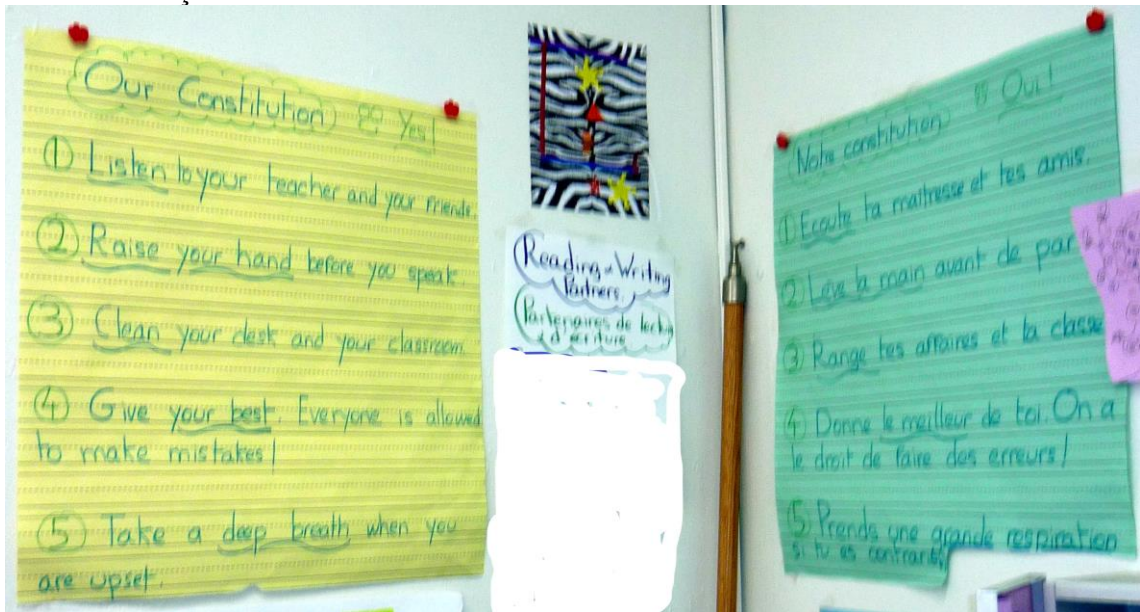 Our Constitution Yes!
① Listen to your teacher and your friends.
② Raise your hand before you speak.
③ Clean your desk and your classroom
④ Give your best. Everyone is allowed
to make mistakes!
⑤ Take a deep breath when you
are upset.
Reading Writing
Partners.
Partenaires de
d'écriture
Notre constitution Oui!
① Ecoute ta maîtresse et tes amis.
② Lève la main avant de par
③ Range tes affaires et la classe
④ Donne le meilleur de toi. On a
le droit de faire des erreurs!
⑤ Prends une grande respiration
si tu es